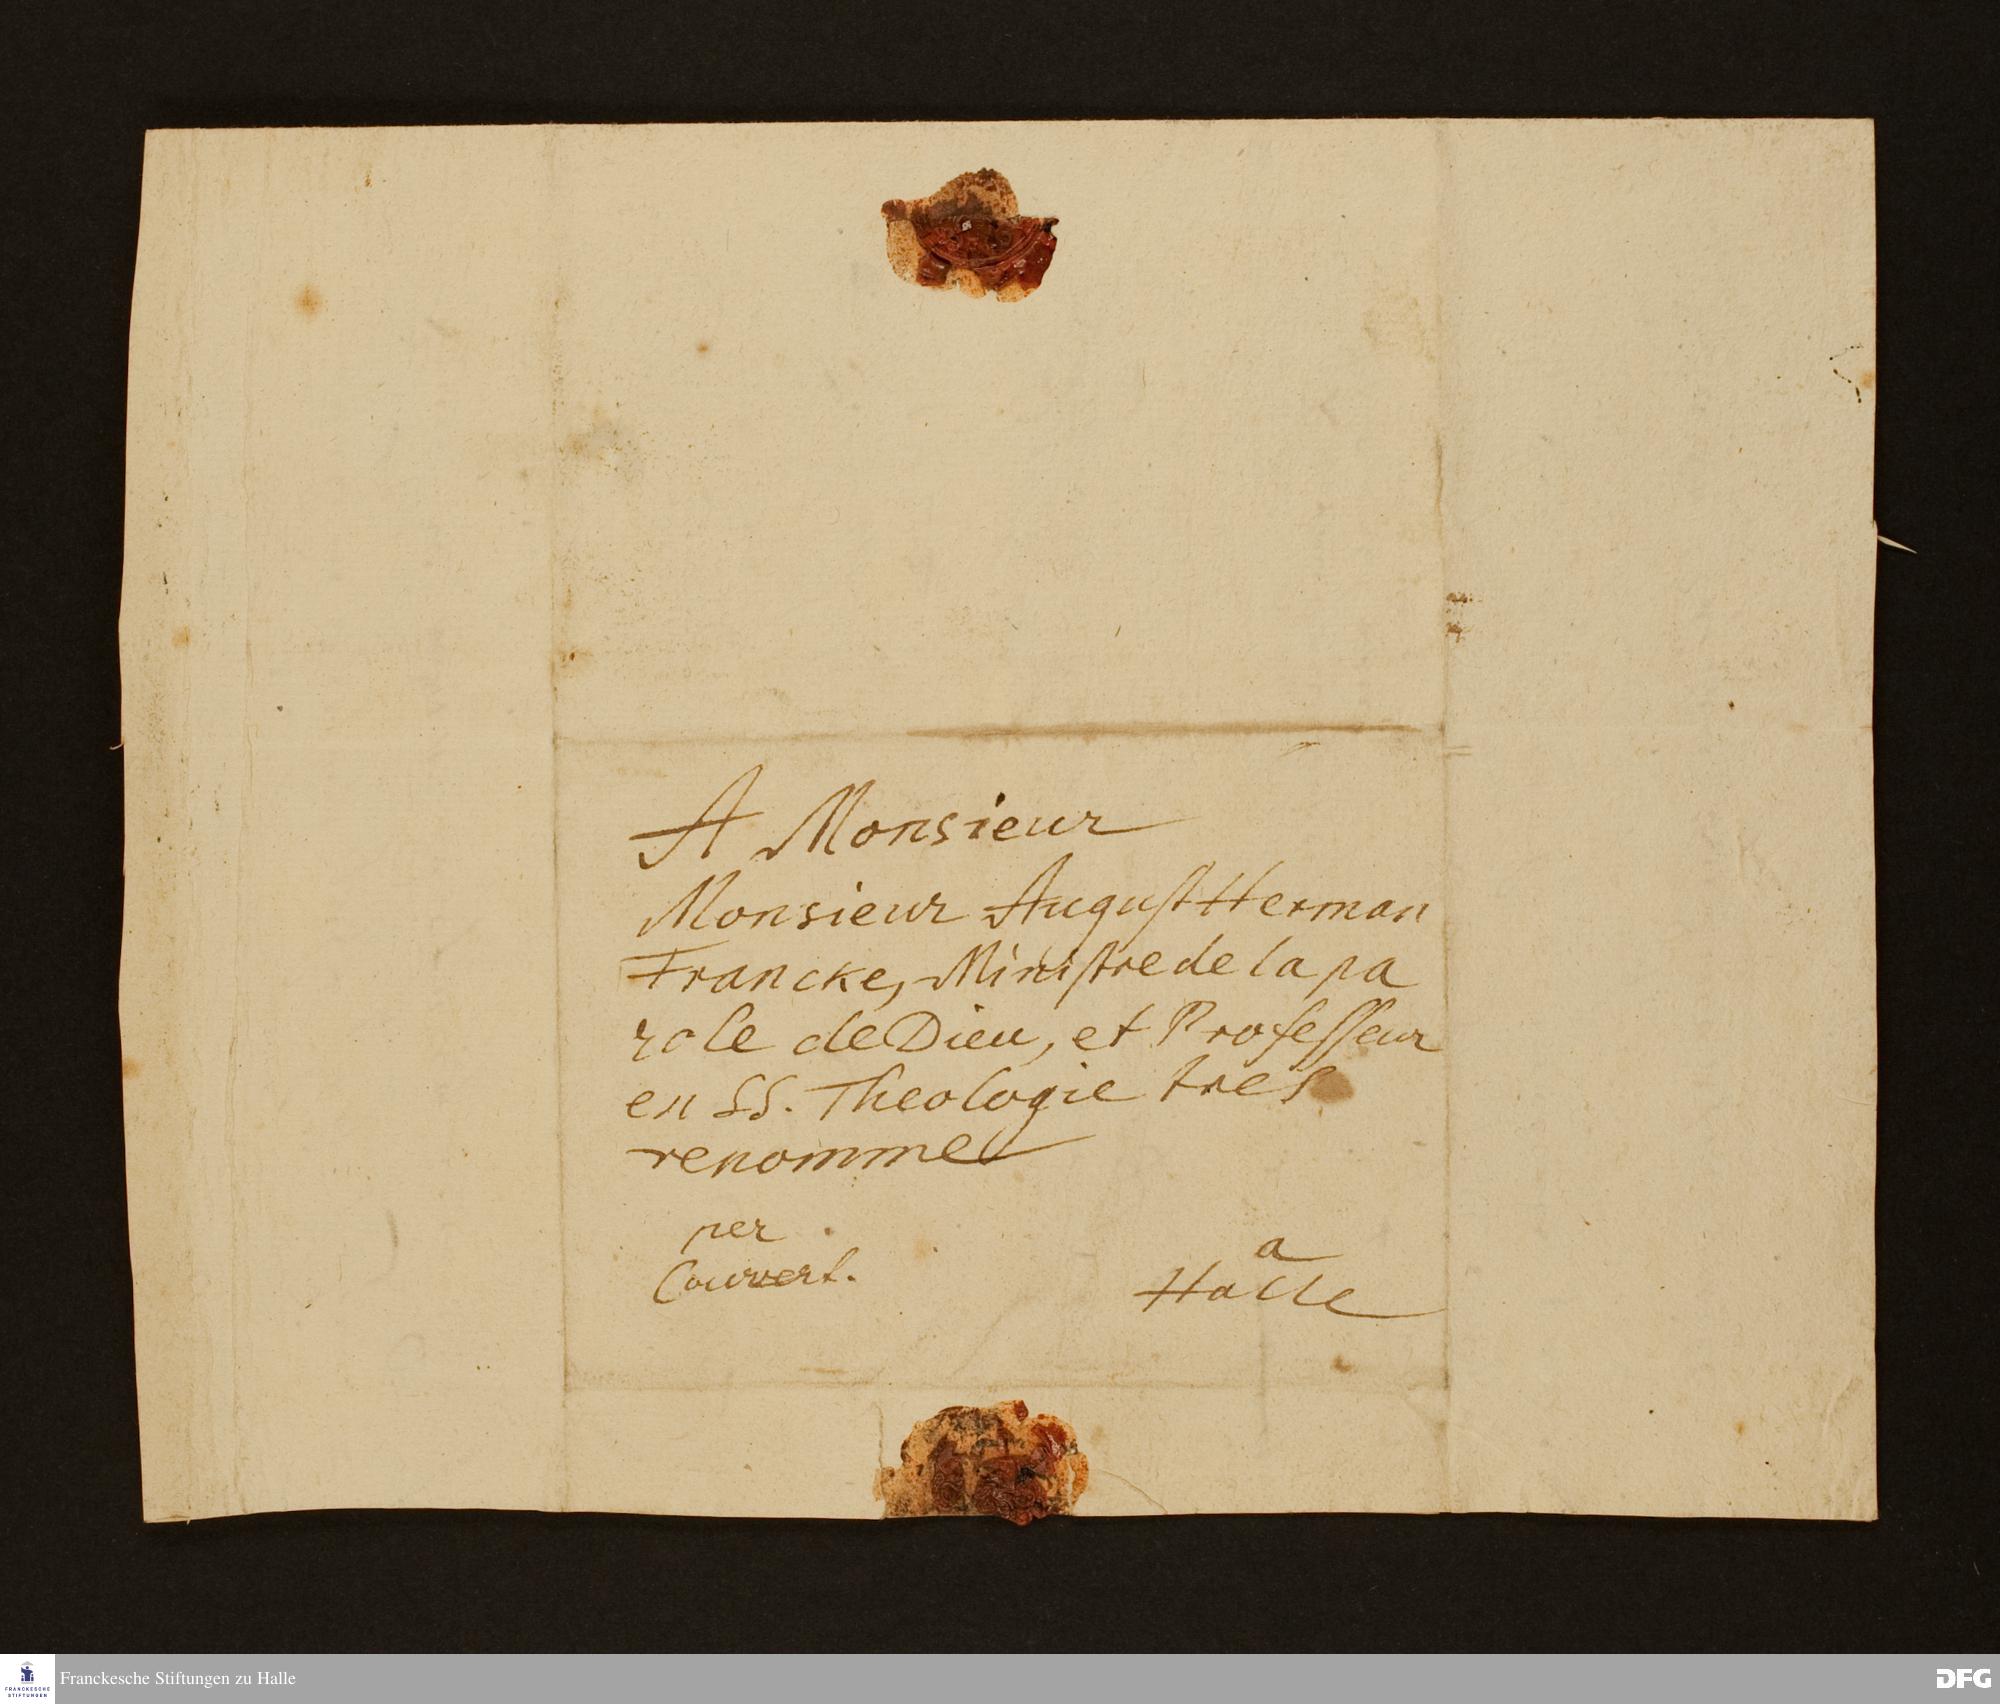 A Monsieur
Monsieur August Herman
Francke, Ministre de la pa
role de Dieu, et Professeur
en SS. Theologie tres
renomme
per
Couvert.
a
Halle
FRANCKESCHE
STIFTUNGEN
Franckesche Stiftungen zu Halle
DFG